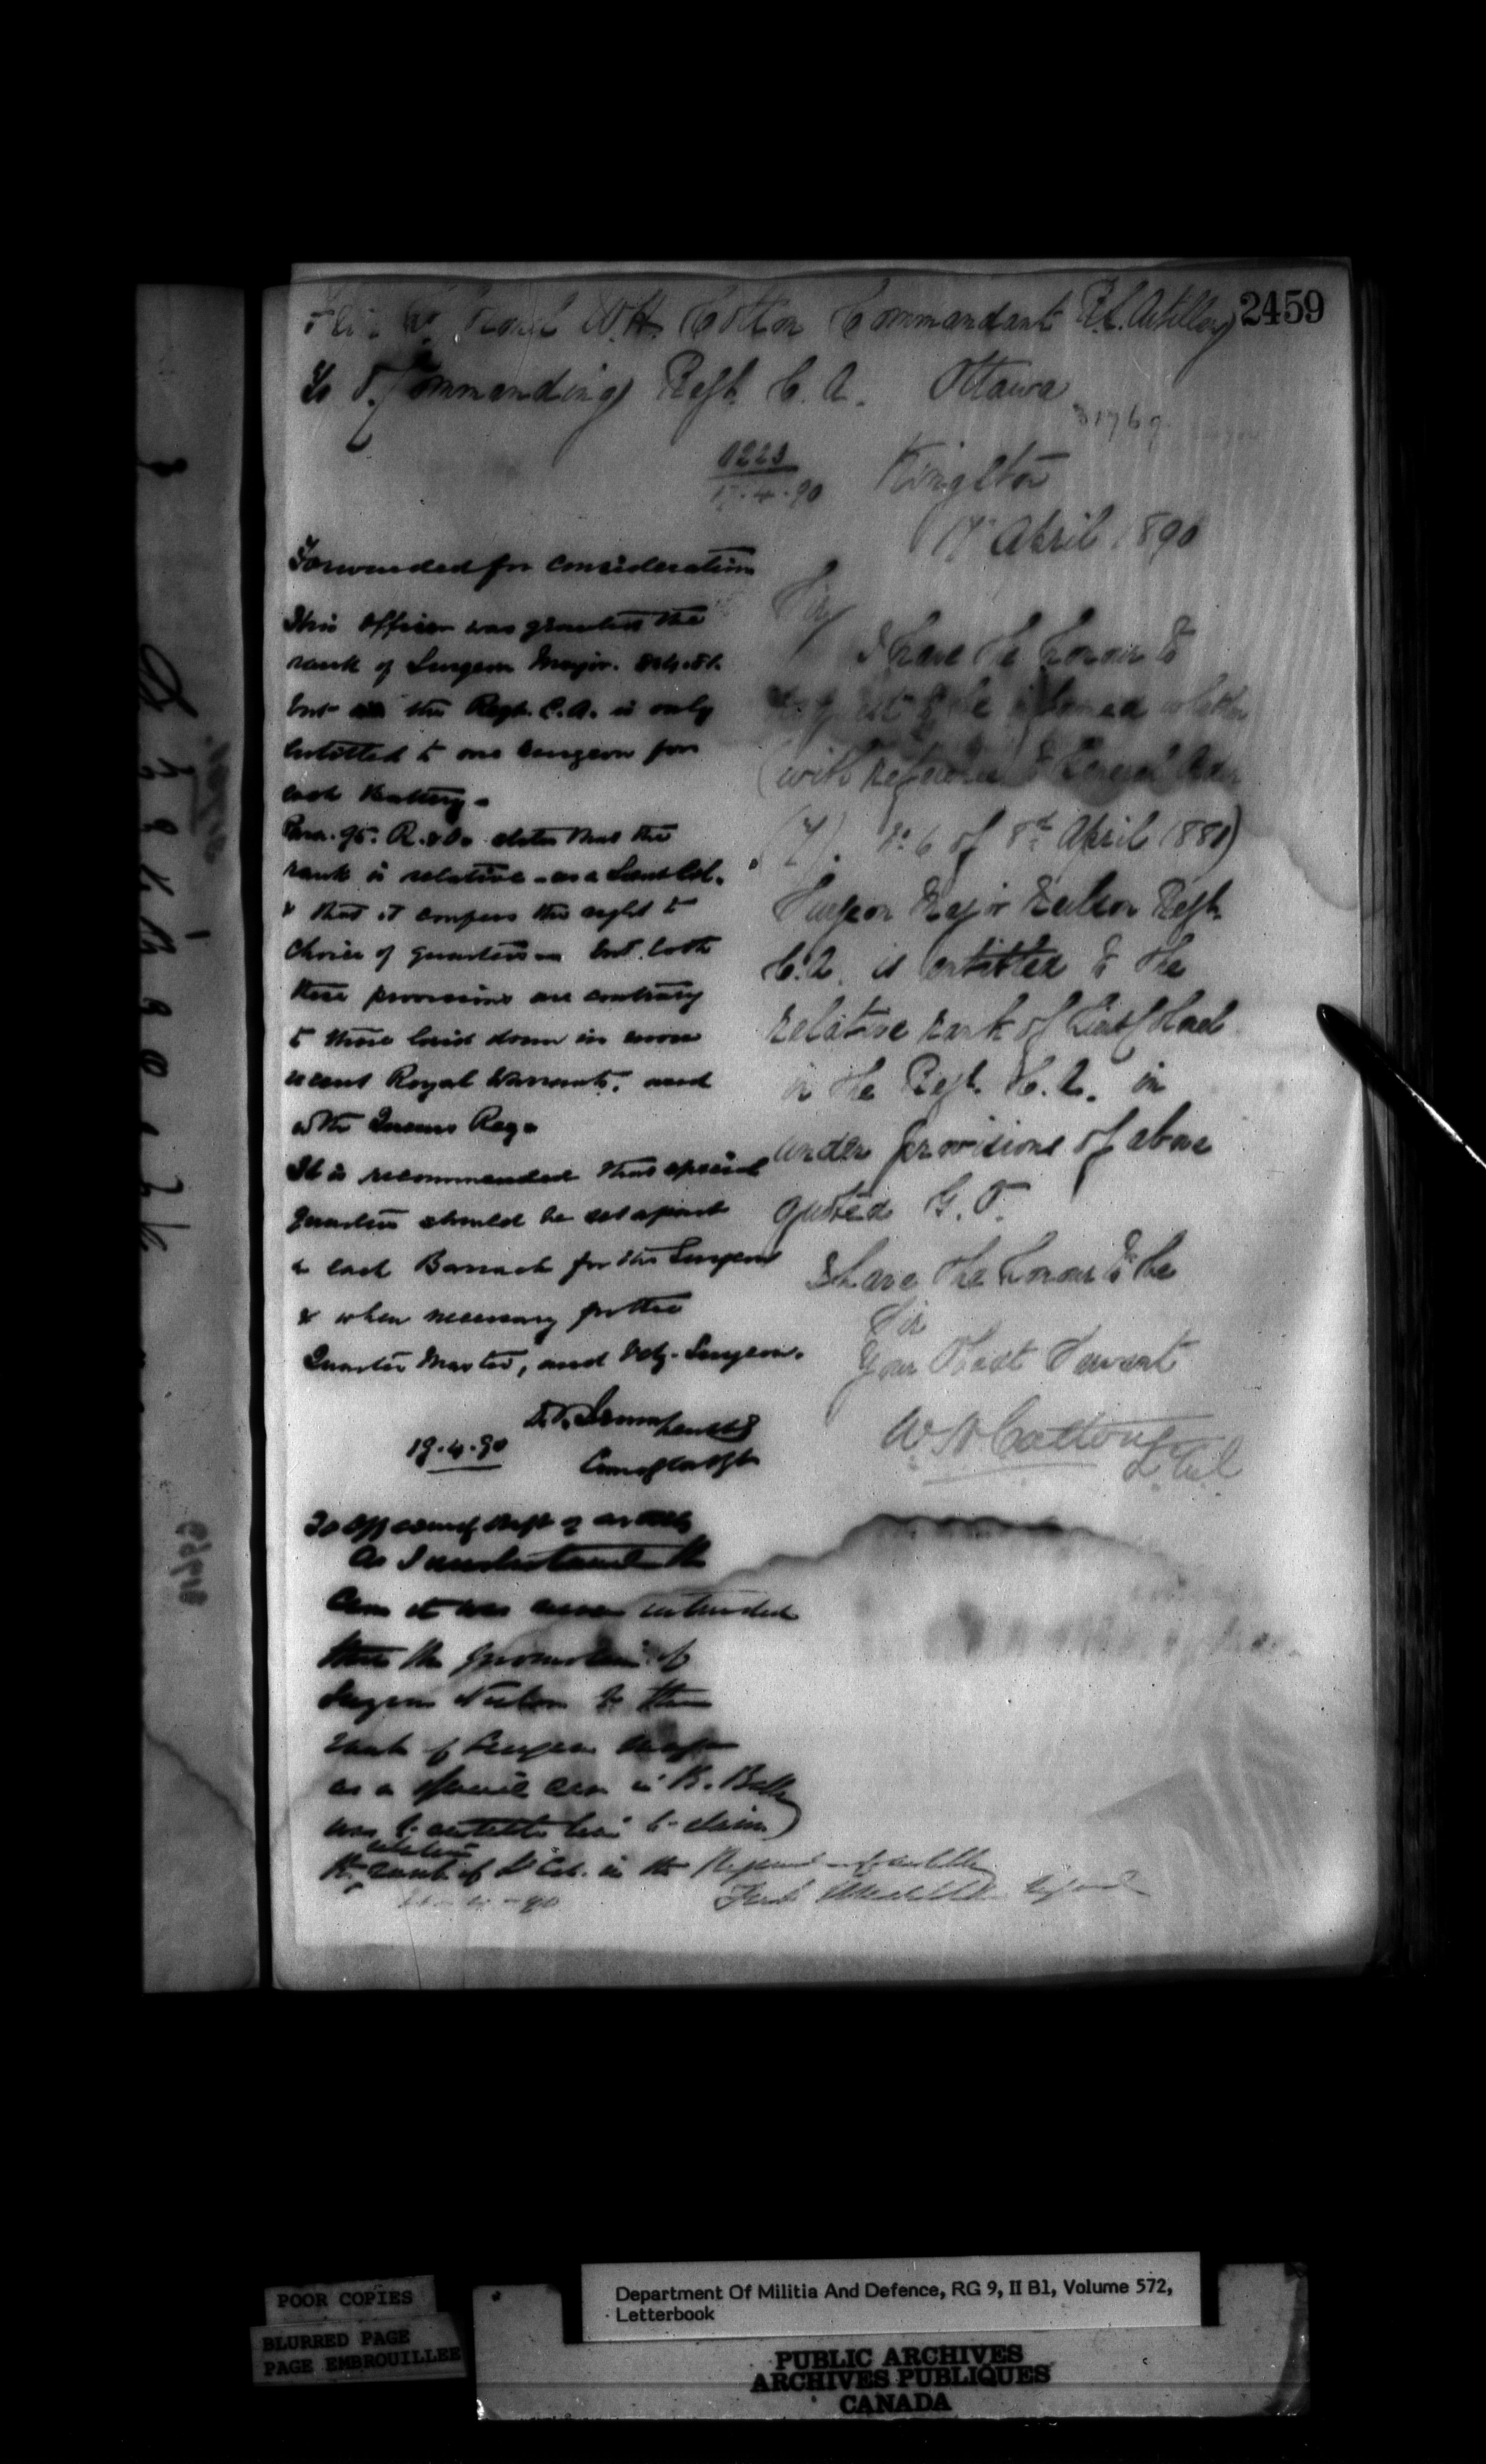 2459
W.H. Cotton Commandant R.S. Artillery
To O. Commanding Regt. C. A. Ottawa
31769
1223
17.4.90
Kingston
17 April 1890
Forwarded for consideration
This officer was granted the
rank of Surgeon Major
but the Regt. C.A. is only
entitled to one surgeon for
each Battery.
Para. 95. R.&O. states that the
rank is relative as a Lieut Col.
& that it confers the right to
choice of quarters but both
these provisions are contrary
to those laid down in more
recent Royal Warrants, and
Queens Reg.
It is recommended that special
quarters should be set apart
in each Barrack for the Surgeon
& when necessary for the
Quarter Master, and Vety. Surgeon.
D.T. Irwin
19.4.90
Sir
I have the honour to
request to be informed whether
(with reference to General Order
(7). No. 6 of 8th April 1881)
Surgeon Major Neilson Regt.
C.A. is entitled to the
relative rank of Lieut Colonel
in the Regt. C.A. in
under provisions of above
quoted G.O.
I have the honour to be
Sir
Your Obedt Servant
W H Cotton
Lt Col
To Off comdg Regt of Artillery
As I understand the
case it was never intended
that the promotion of
Surgeon Neilson to the
rank of Surgeon Major
as a special case in B. Batty
was to entitle him to claim
relative
the rank of Lt Col. in the Regiment of Artillery
90
POOR COPIES
BLURRED PAGE
PAGE EMBROUILLEE
Department Of Militia And Defence, RG 9, II B1, Volume 572,
Letterbook
PUBLIC ARCHIVES
ARCHIVES PUBLIQUES
CANADA